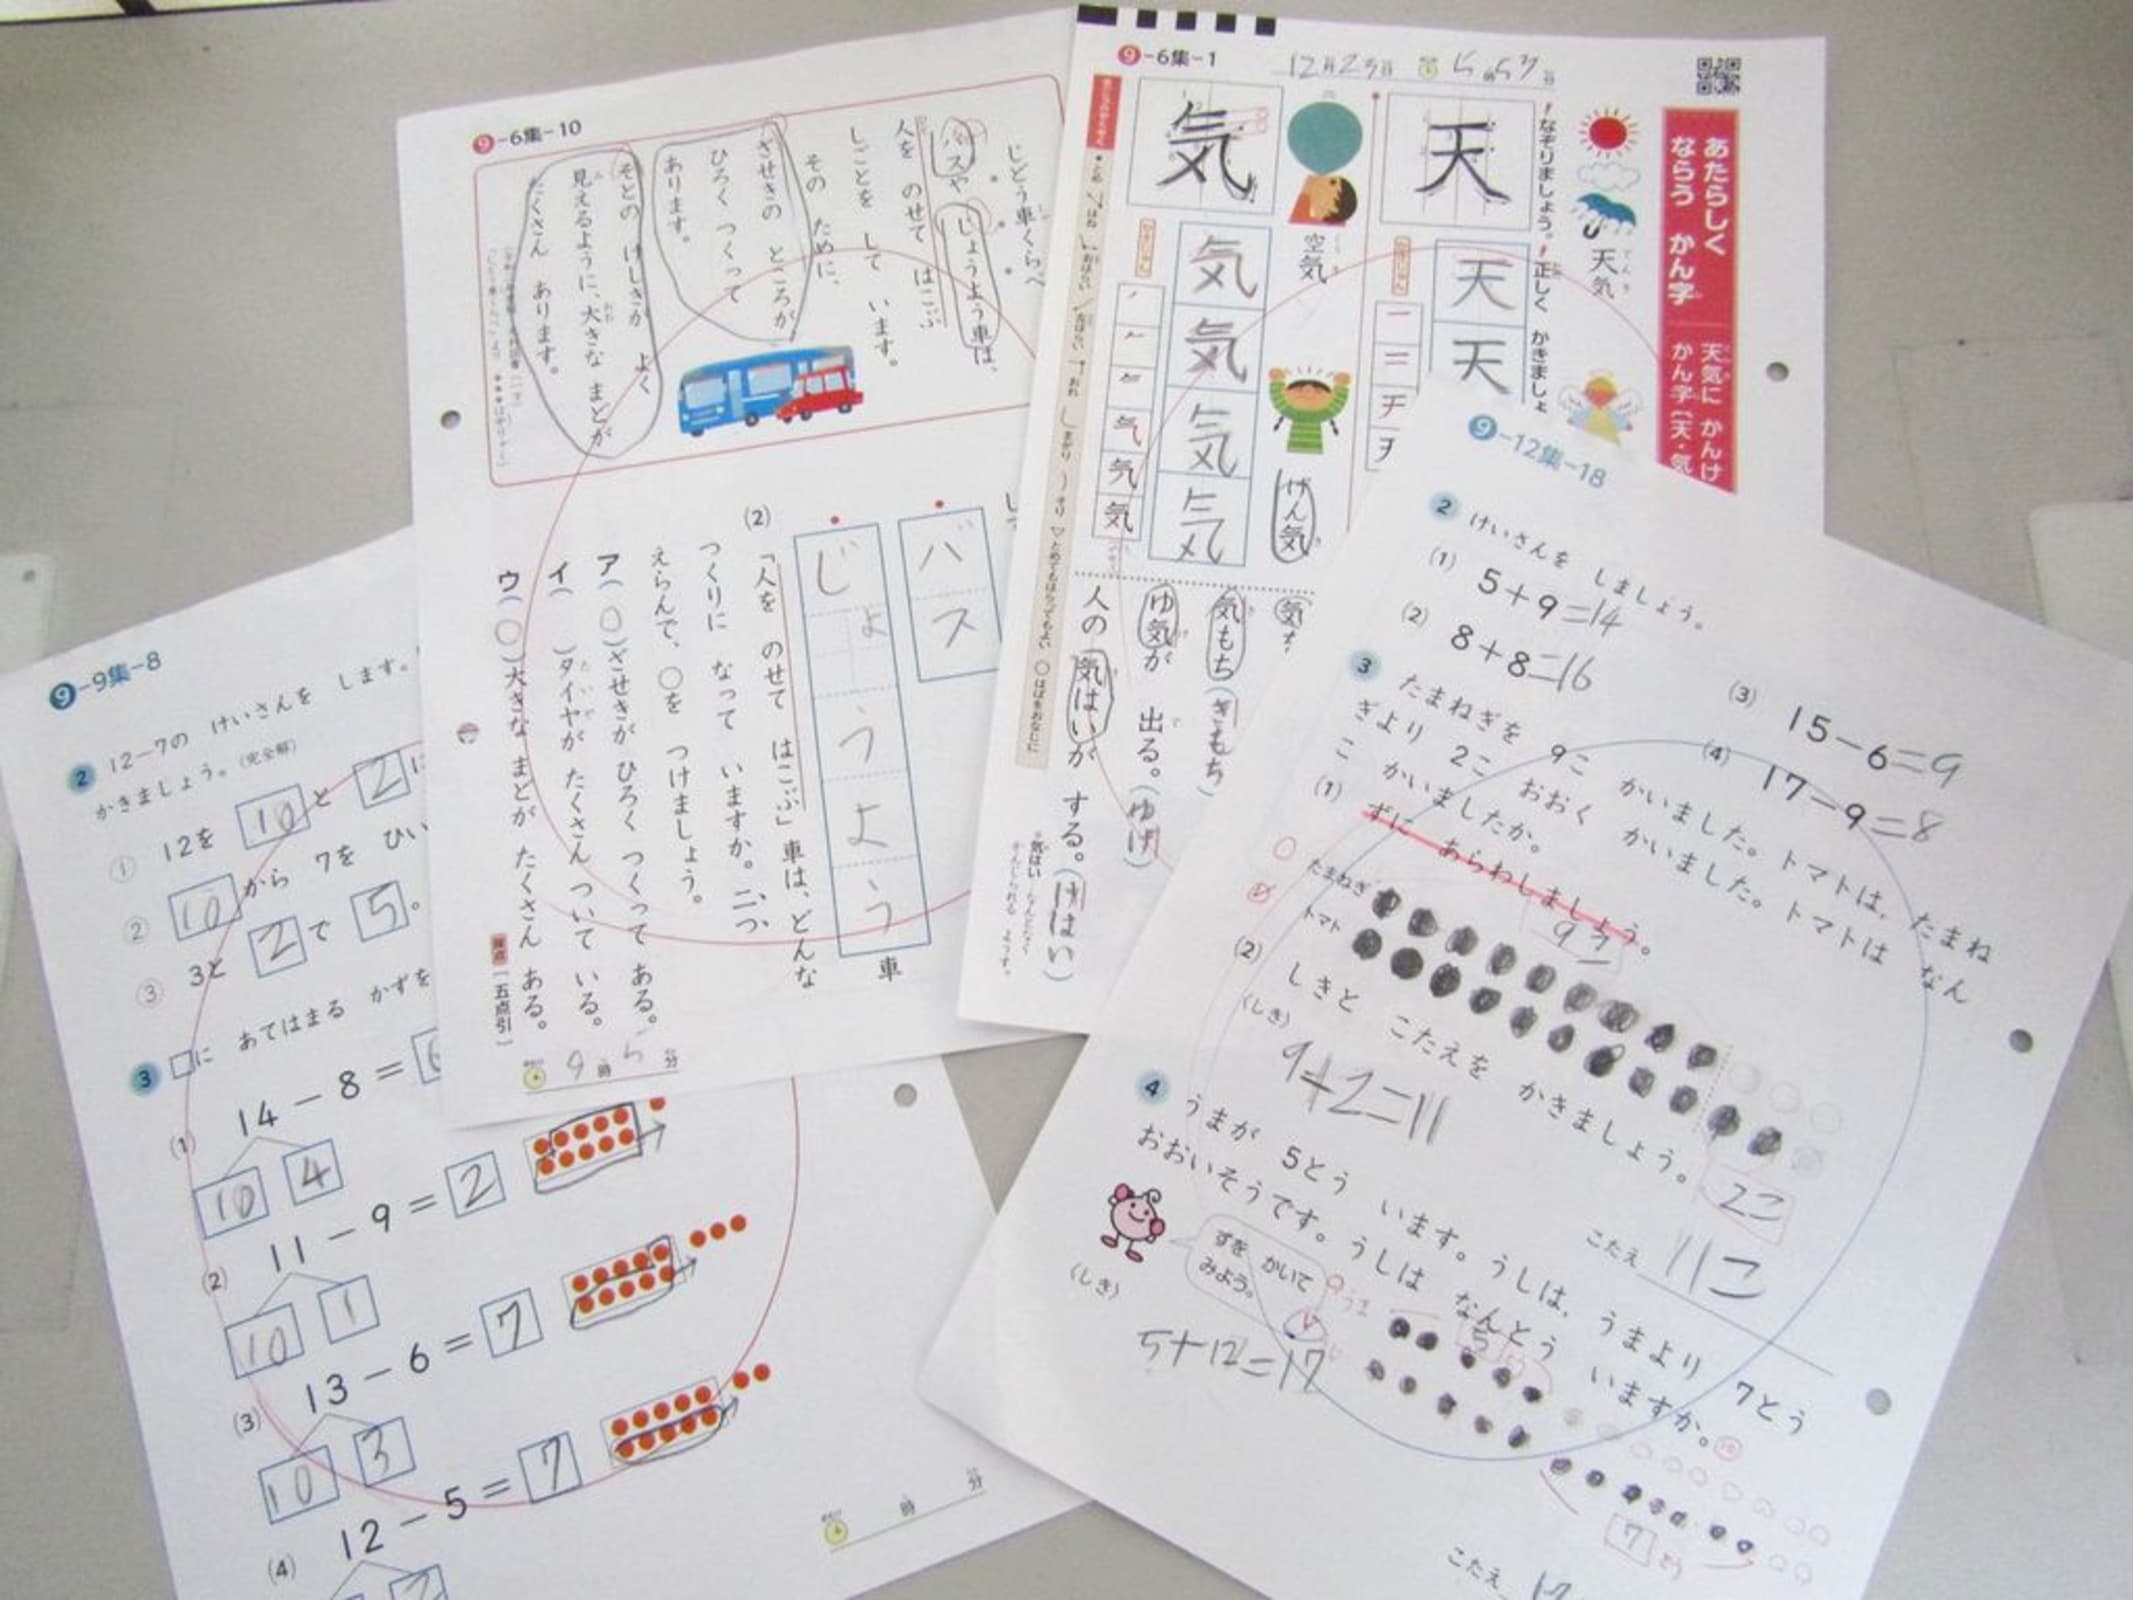 9-6集-10
じどう車くらべ
バスや じょうよう車は、
人を のせて はこぶ
しごとを して います。
その ために、
ざせきの ところが
ひろく つくって
あります。
そとの けしきが よく
見えるように、大きな まどが
たくさん あります。
バス
じょうよう
車
(2)
「人を のせて はこぶ」車は、どんな
つくりに なって いますか。二つ
えらんで、○を つけましょう。
ア(○)ざせきが ひろく つくって ある。
イ( )タイヤが たくさん ついて いる。
ウ(○)大きな まどが たくさん ある。
減点[一五点引]
9時5分
9-6集-1
12月25日
あたらしく
ならう かん字
天気に かんけ
かん字〔天・気
!なぞりましょう。!正しく かきましょ
天気
天
天
天
空気
気
気
気
気
気
げん気
気もち(きもち)
ゆ気が 出る。(ゆげ)
人の 気はいが する。(けはい)
9-9集-8
2 12-7の けいさんを します。
かきましょう。(完全解)
① 12を 10 と 2 に
② 10 から 7を ひい
③ 3と 2 で 5。
3 □に あてはまる かずを
(1) 14-8=6
10 4
(2) 11-9=2
10 1
(3) 13-6=7
10 3
(4) 12-5=7
時 分
9-12集-18
2 けいさんを しましょう。
(1) 5+9=14
(2) 8+8=16
(3) 15-6=9
(4) 17-9=8
3 たまねぎを 9こ かいました。トマトは、たまね
ぎより 2こ おおく かいました。トマトは なん
こ かいましたか。
(1) ずに あらわしましょう。
9こ
たまねぎ
トマト
2こ
(2) しきと こたえを かきましょう。
(しき)
9+2=11
こたえ 11こ
4 うまが 5とう います。うしは、うまより 7とう
おおいそうです。うしは なんとう いますか。
ずを かいて
みよう。
うま
(しき)
5+12=17
7とう
こたえ